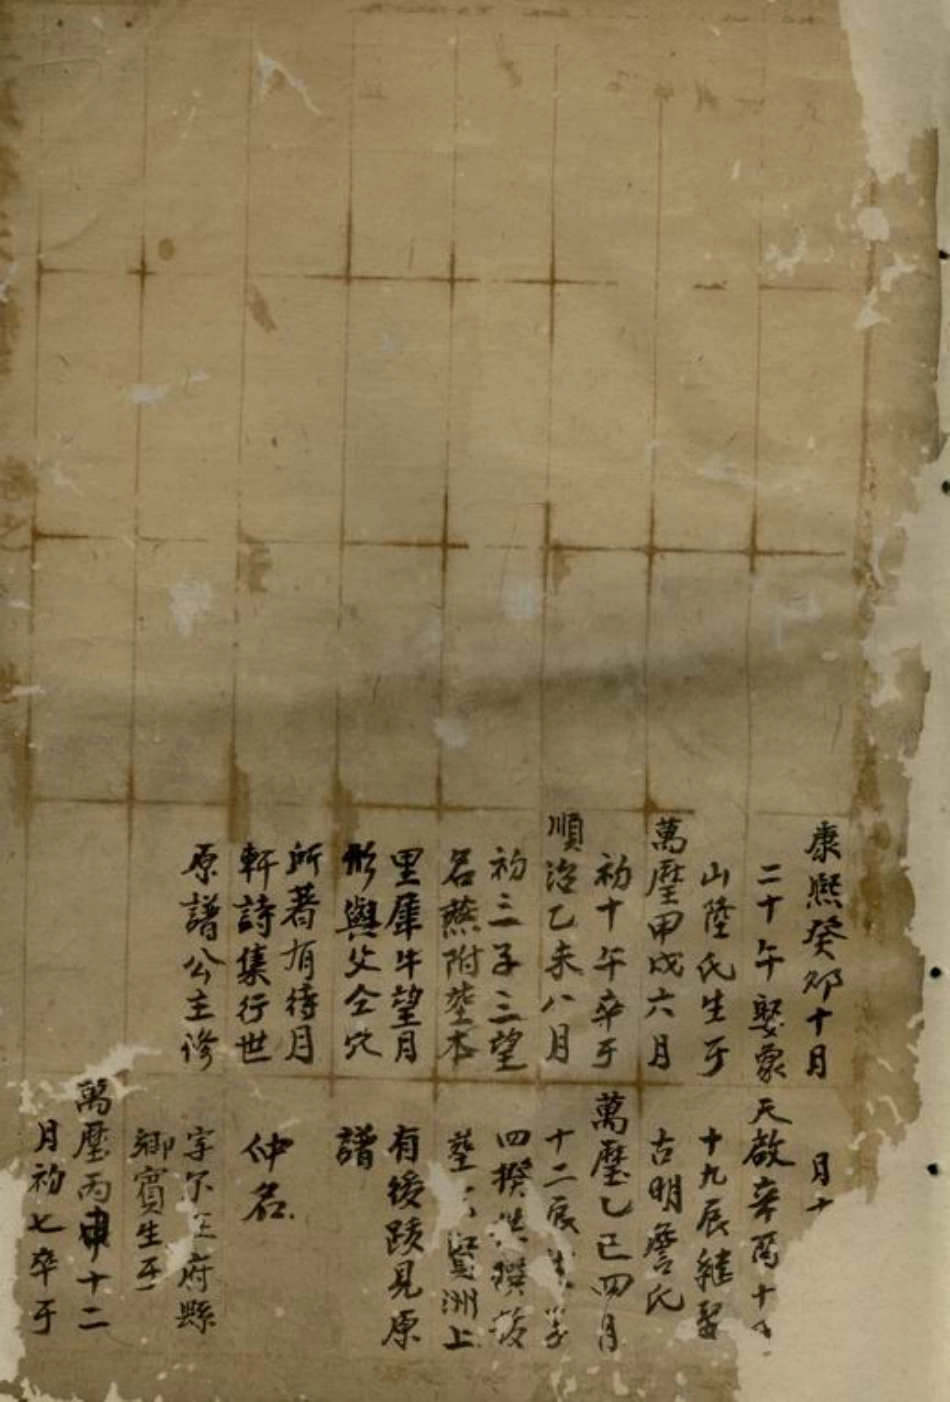 康熙癸卯十月
二十午娶象
山陸氏生于
萬曆甲戌六月
初十午卒于
順治乙未八月
初三子三望
名燕附塟本
里犀牛望月
形與父仝穴
所著有待月
軒詩集行世
原譜公主修
月十
天啟辛酉十
十九辰繼娶
古明詹氏
萬曆乙巳四月
十二辰
四揆
塟 洲上
有後跋見原
譜
仲名
字 府縣
鄉賓生于
萬曆丙申十二
月初七卒于